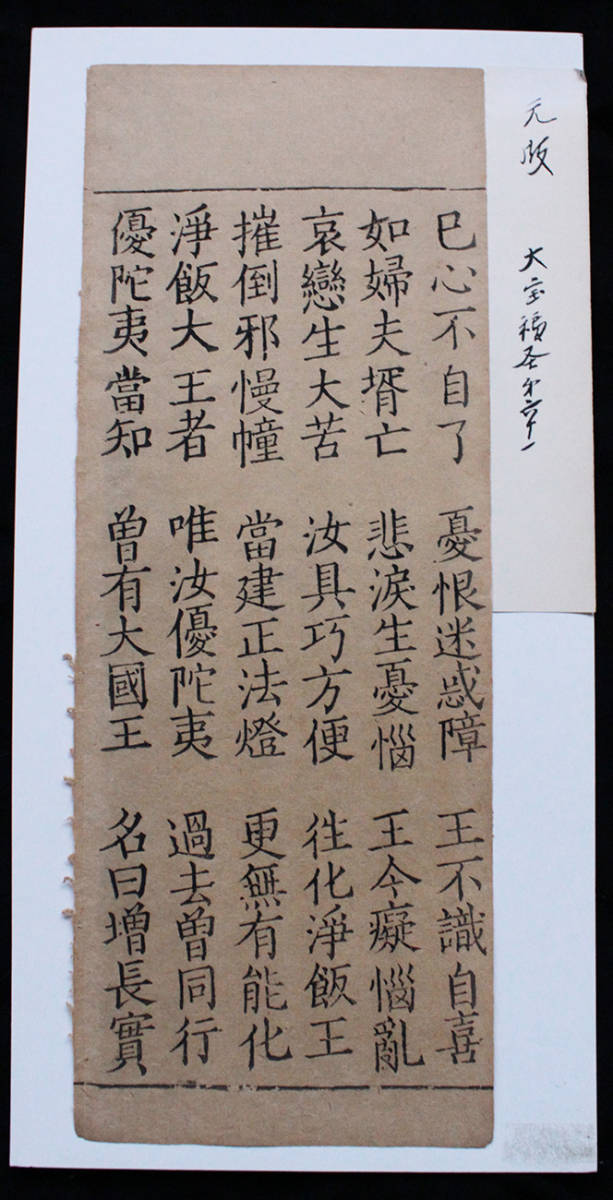 元版 大宝積圣才六十一
巳心不自了 憂恨迷惑障 王不識自喜
如婦夫壻亡 悲淚生憂惱 王今癡惱亂
哀戀生大苦 汝具巧方便 往化淨飯王
摧倒邪慢幢 當建正法燈 更無有能化
淨飯大王者 唯汝優陀夷 過去曾同行
優陀夷當知 曾有大國王 名曰增長實